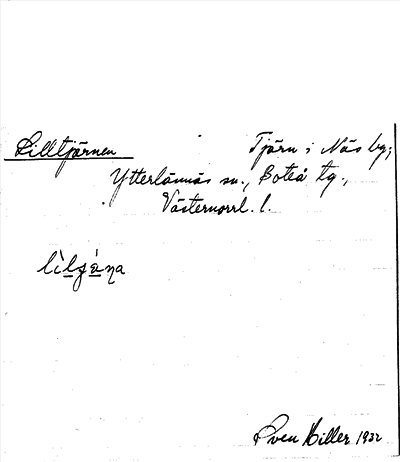 Lilltjärnen Tjärn i Näs by;
Ytterlännäs sn., Boteå tg.,
Västernorrl. l.
Sven Hiller 1932